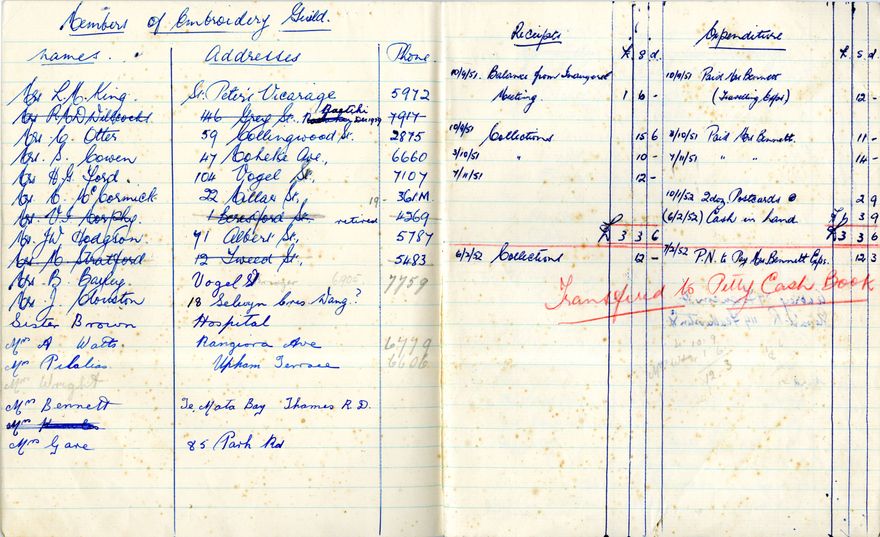 Members of Embroidery Guild.
Names. Addresses Phone
Mrs L.M. King. St. Peter's Vicarage 5972
Mrs R.A.D. Willcocks 146 Grey St. 7917
Mrs C. Otter 59 Collingwood St. 2875
Mrs. S. Cowen 47 Ave., 6660
Mrs H.G. Ford. 104 Vogel St., 7107
Mrs McCormick 22 Millar St, 19- 361M
Mrs V.G. Murphy. 1 Beresford St. retired 4269
Mrs J.W. Hodgson. 71 Albert St., 5787
Mrs Stratford 12 Tweed St., 5483
Mrs. B. Bayley Vogel St 7759
Mrs. J. Houston 18 Selwyn Cres Wang?
Sister Brown Hospital
Mrs A Watts. Rangiora Ave 6779
Mrs Upham Terrace 6606
Mrs Wright
Mrs Bennett Te Mata Bay Thames R.D.
Mrs
Mrs Gare 85 Park Rd
Receipts
£ s d.
10/9/51. Balance from Inaugural
Meeting. 1 6 -
10/9/51 Collections 15 6
3/10/51 " 10 -
7/11/51 12 -
£ 3 3 6
6/2/52 Collections 12 -
Expenditure
£ s d
10/9/51 Paid Mrs Bennett
(Travelling Exps) 12 -
3/10/51 Paid Mrs Bennett. 11 -
7/11/51 " " 14 -
10/1/52 2 doz Postcards @ 2 9
(6/2/52) Cash in hand 3 9
£ 3 3 6
7/2/52 P.N. to Pay Mrs Bennett Exps. 12 3
Transfered to Petty Cash Book
12.3